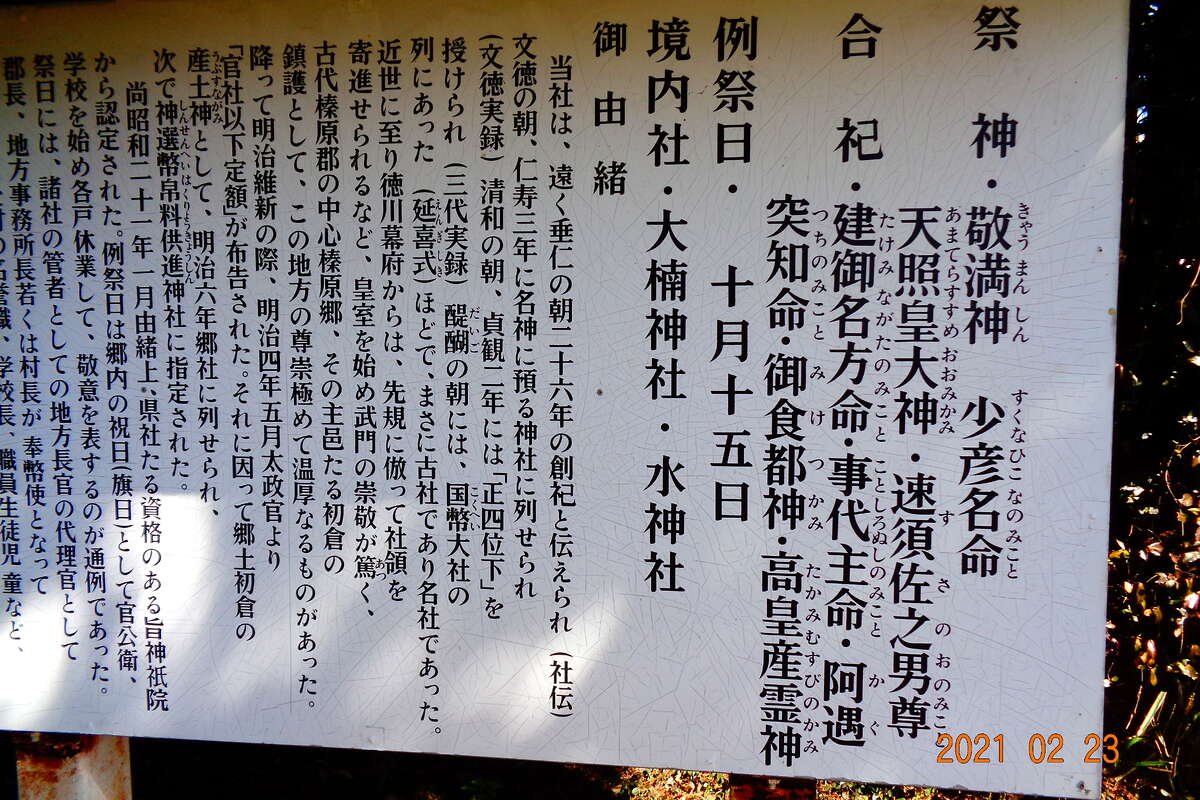 祭神・敬満神 少彦名命
天照皇大神・速須佐之男尊
合祀・建御名方命・事代主命・阿遇
突知命・御食都神・高皇産霊神
例祭日・十月十五日
境内社・大楠神社・水神社
御由緒
当社は、遠く垂仁の朝二十六年の創祀と伝えられ(社伝)
文徳の朝、仁寿三年に名神に預る神社に列せられ
(文徳実録)清和の朝、貞観二年には「正四位下」を
授けられ(三代実録)醍醐の朝には、国幣大社の
列にあった(延喜式)ほどで、まさに古社であり名社であった。
近世に至り徳川幕府からは、先規に倣って社領を
寄進せられるなど、皇室を始め武門の崇敬が篤く、
古代榛原郡の中心榛原郷、その主邑たる初倉の
鎮護として、この地方の尊崇極めて温厚なるものがあった。
降って明治維新の際、明治四年五月太政官より
「官社以下定額」が布告された。それに因って郷土初倉の
産土神として、明治六年郷社に列せられ、
次で神選幣帛料供進神社に指定された。
尚昭和二十一年一月由緒上、県社たる資格のある旨神祇院
から認定された。例祭日は郷内の祝日(旗日)として官公衛、
学校を始め各戸休業して、敬意を表するのが通例であった。
祭日には、諸社の管者としての地方長官の代理官として
郡長、地方事務所長若くは村長が奉幣使となって
名誉職、学校長、職員生徒児童など、
2021 02 23